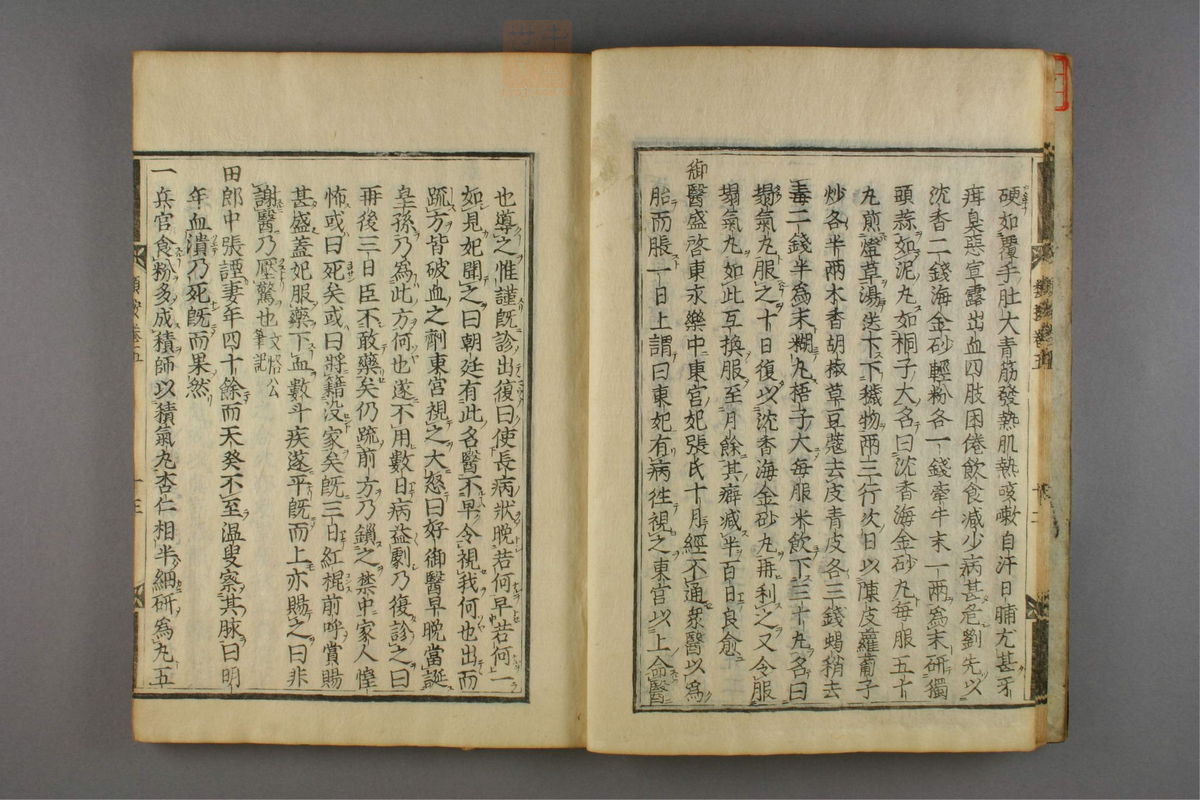 硬如覆手肚大青筋發熱肌熱咳嗽自汗日晡尤甚牙
疳臭惡宣露出血四肢困倦飲食減少病甚危劉先以
沈香二錢海金砂輕粉各一錢牽牛末一兩爲末研獨
頭蒜如泥丸如桐子大名曰沈香海金砂丸每服五十
丸煎燈草湯送下下穢物兩三行次日以陳皮蘿蔔子
炒各半兩木香胡椒草豆蔻去皮青皮各三錢蝎稍去
毒二錢半爲末糊丸梧子大每服米飲下三十丸名曰
塌氣丸服之十日復以沈香海金砂丸再利之又令服
塌氣丸如此互換服至月餘其癖減半百日良愈
御醫盛啓東永樂中東宮妃張氏十月經不通衆醫以爲
胎而脹一日上謂曰東妃有病徃視之東宮以上命醫
也導之惟謹既診出復曰使長病狀晩若何早若何一
如見妃聞之曰朝廷有此名醫不早令視我何也出而
疏方皆破血之劑東宮視之大怒曰好御醫早晩當誕
皇孫乃爲此方何也遂不用數日病益劇乃復診之曰
再後三日臣不敢藥矣仍疏前方乃鎖之禁中家人惶
怖或曰死矣或曰將籍没家矣既三日紅棍前呼賞賜
甚盛蓋妃服藥下血數斗疾遂平既而上亦賜之曰非
謝醫乃壓驚也文恪公筆記
田郎中張謹妻年四十餘而天癸不至温叟察其脉曰明
年血潰乃死既而果然
一兵官食粉多成積師以積氣丸杏仁相半細研爲丸五